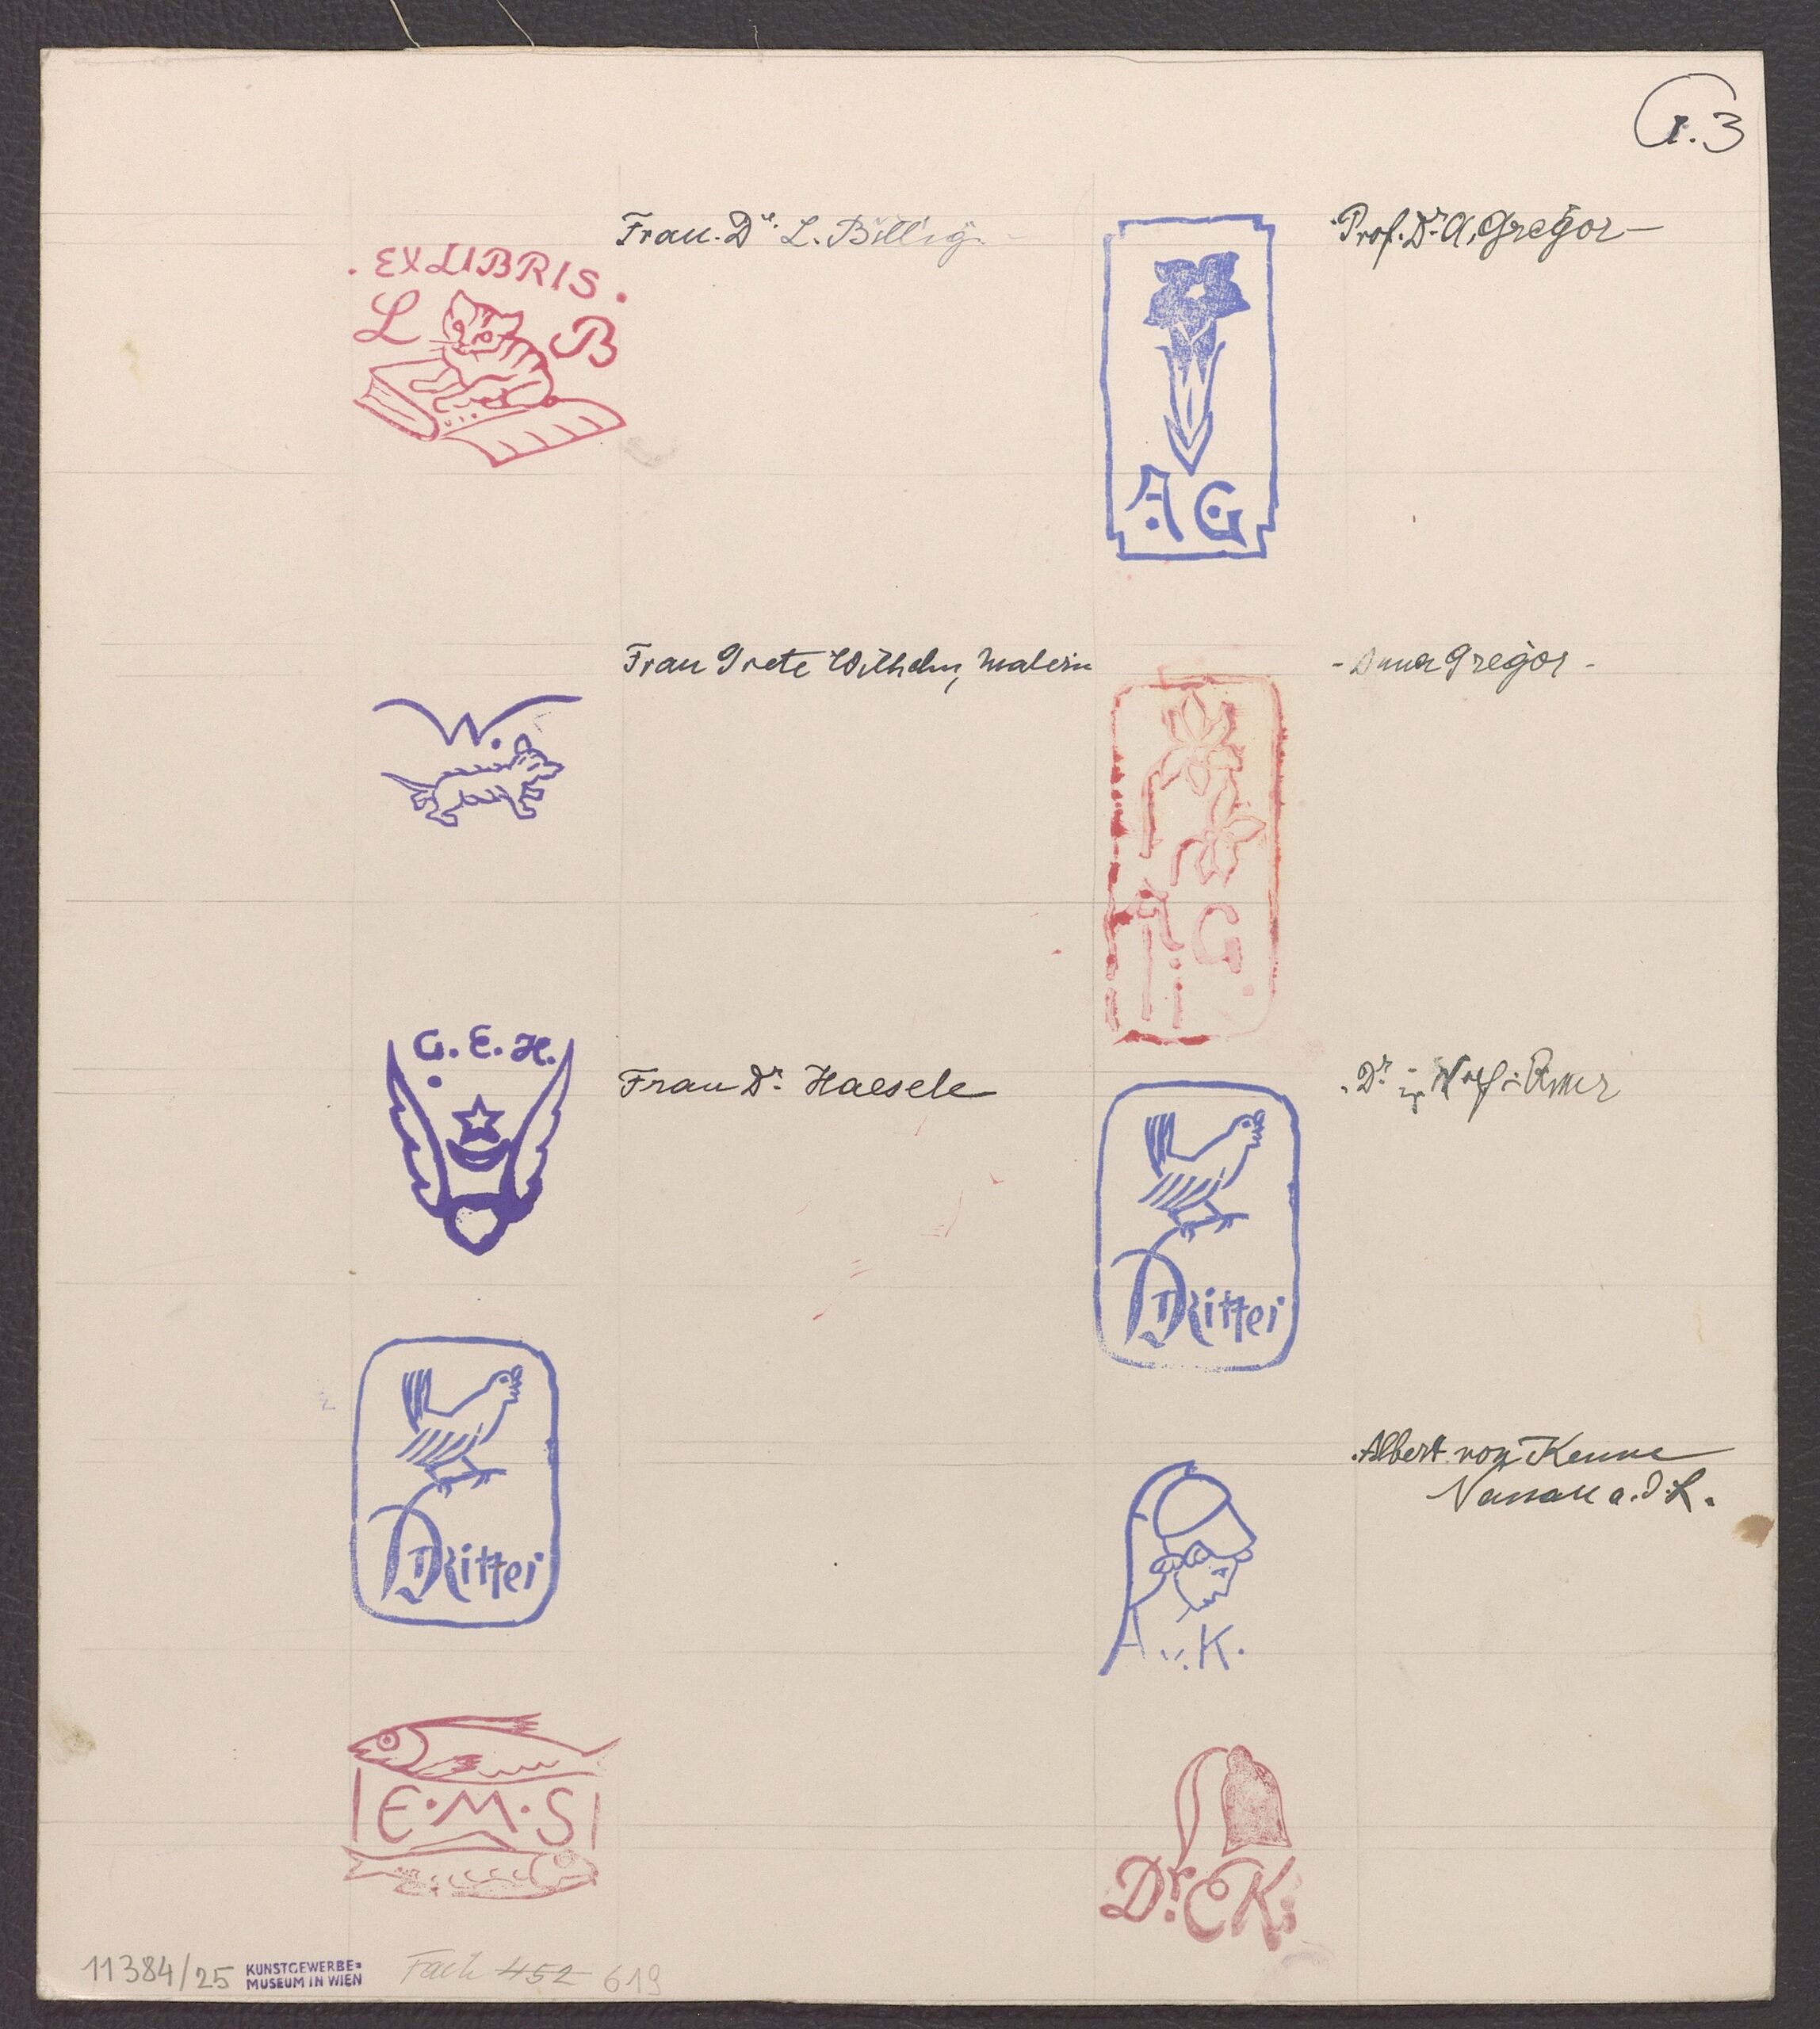 G.3
Frau. Dr. L. Billig.
. EX LIBRIS .
L B
Prof. Dr. A. Gregor
A G
Frau Grete Wilhelm, Malerin
W.
- Anna Gregor -
A G.
G. E. H.
Frau Dr. Haesele
Dr.
Ritter
Ritter
Albert von
a. d. L.
A v. K.
E · M · S
Dr. E K.
11384/25 KUNSTGEWERBE=
MUSEUM IN WIEN
Fach 452 619